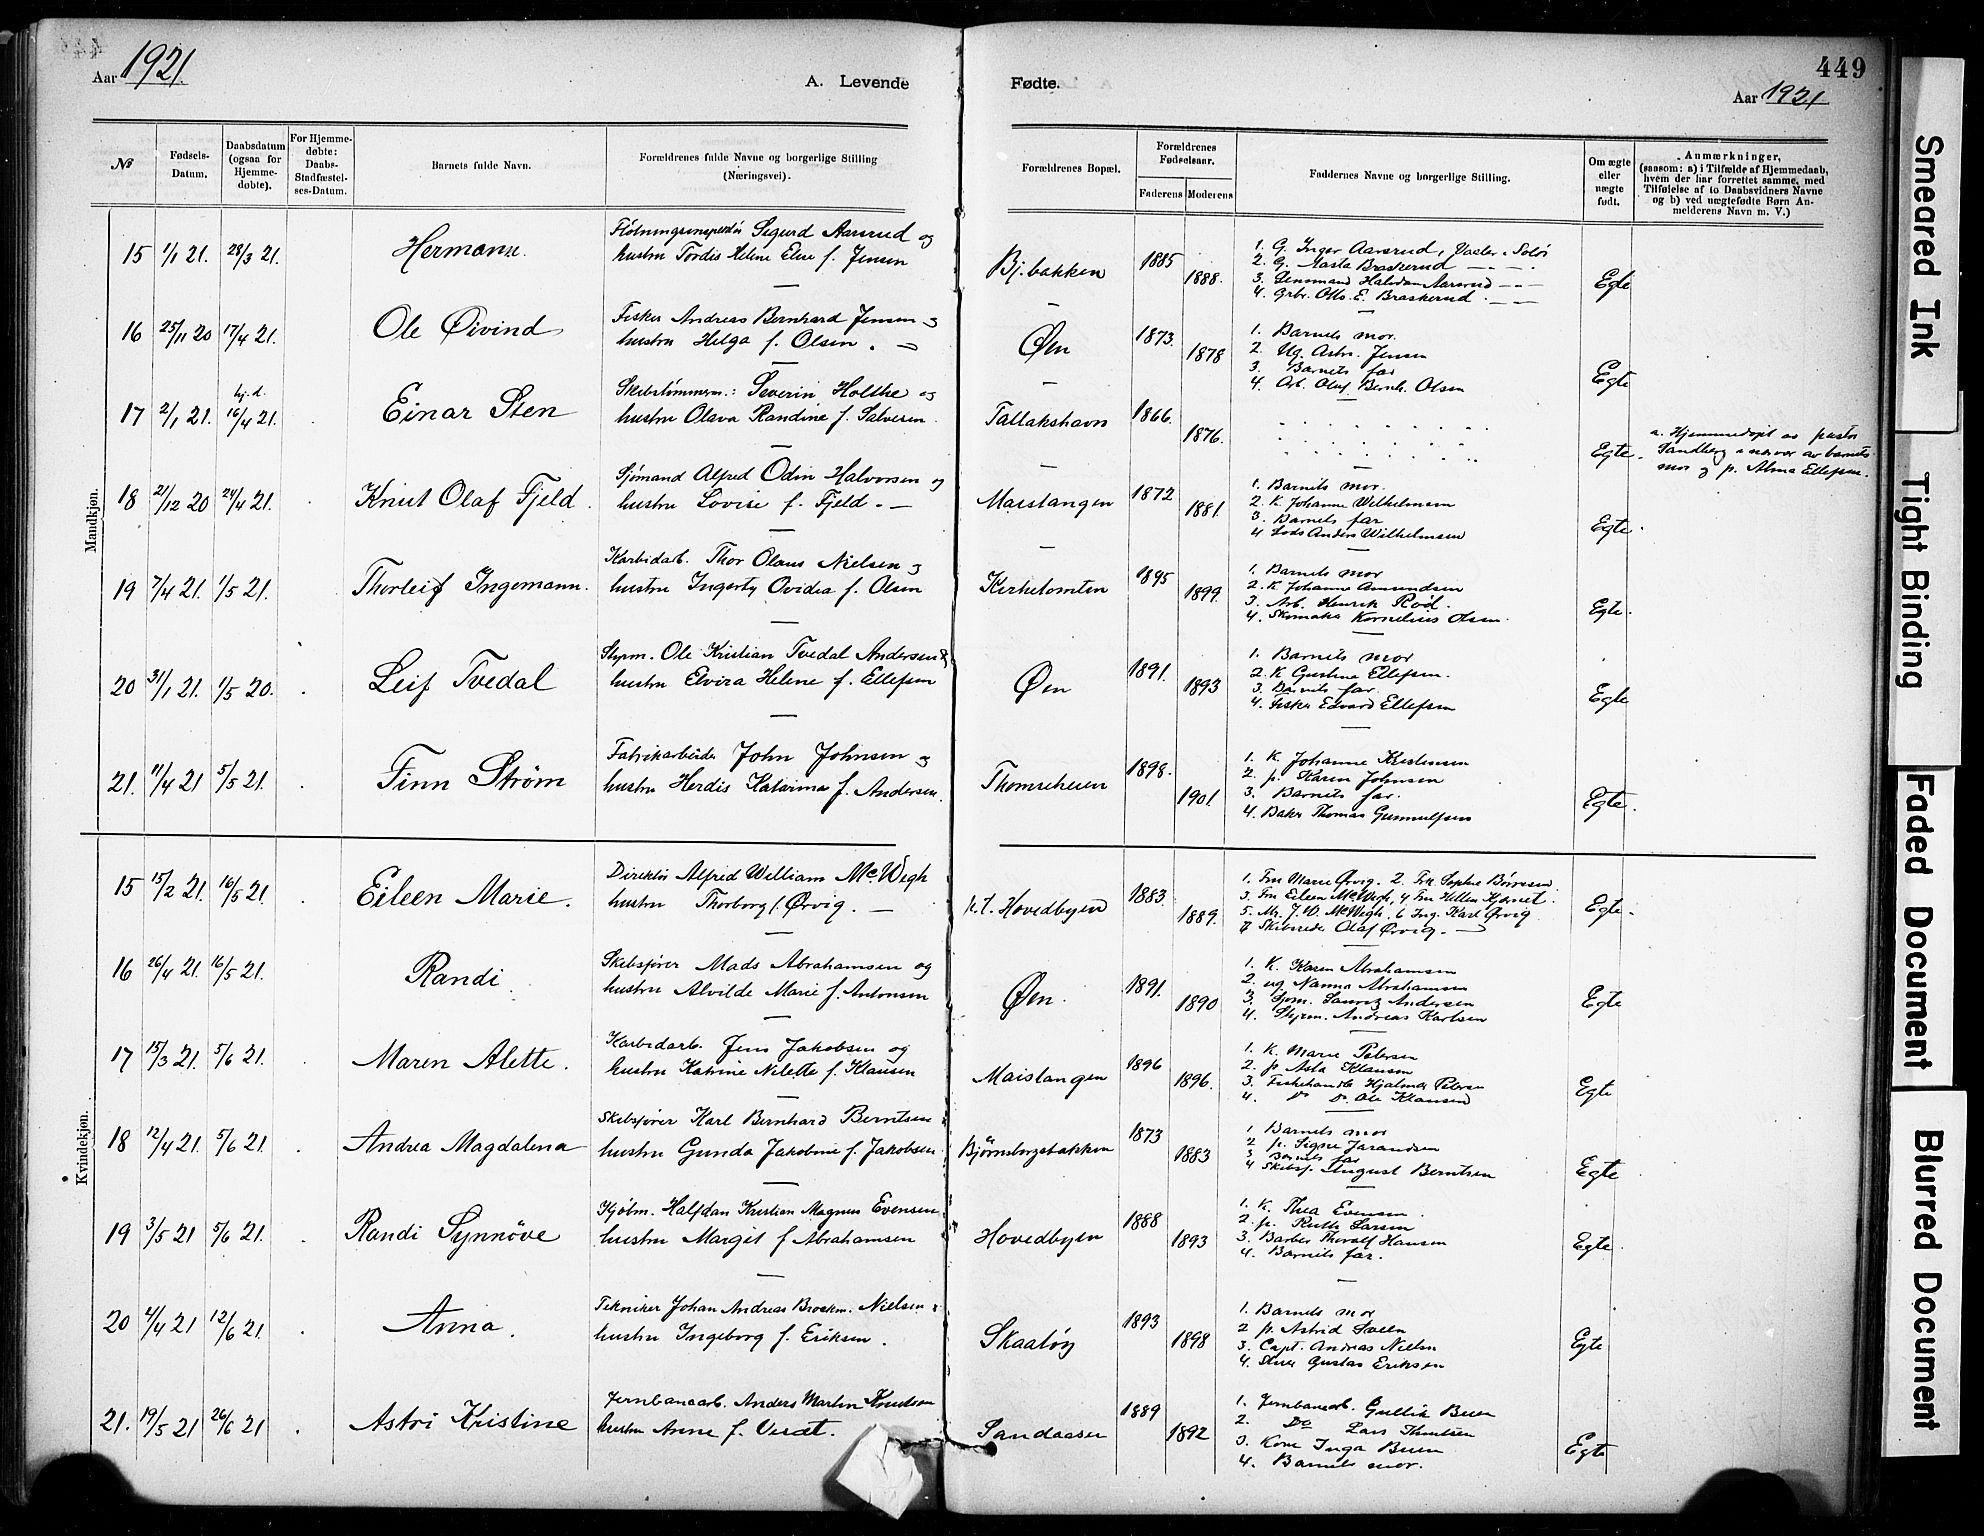 Aar 1921.
A. Levende Fødte.
449
Aar 1921
№
Fødsels-Datum.
Daabsdatum (ogsaa for Hjemmedøbte).
For Hjemmedøbte: Daabs-Stadfæstelses-Datum.
Barnets fulde Navn.
Forældrenes fulde Navne og borgerlige Stilling (Næringsvei).
Forældrenes Bopæl.
Forældrenes Fødselsaar.
Faderens Moderens
Faddernes Navne og borgerlige Stilling.
Om ægte eller uægte født.
Anmærkninger, (saasom: a) i Tilfælde af Hjemmedaab, hvem der har forrettet samme, med Tilføielse af to Daabsvidners Navne og b) ved uægtefødte Børn Anmelderens Navn m. V.)
Mandkjøn.
15 1/1 21. 28/3 21. Hermann.
Fløtningsinspektør Sigurd Aarsrud og
hustru Tordis Helene Elise f. Jensen
Bj.bakken 1885 1888.
1. G. Inger Aarsrud, Vaaler i Solør
2. G. Marta Braskerud — — .
3. Lensmand Halvdan Aarsrud — —
4. Grbr. Otto E. Braskerud — —
Egte
16 25/11 20 17/4 21. Ole Øivind
Fisker Andreas Bernhard Jensen og
hustru Helga f. Olsen. —
Øen 1873. 1878
1. Barnets mor.
2. Ug. Astr. Jensen
3. Barnets far
4. Arb. Oluf Bernh. Olsen
Egte
17 2/1 21. hj.d. 16/4 21. Einar Sten
Skibstømmerm.: Severin Holthe og
hustru Olava Randine f. Salvesen.
Tallakshavn 1866. 1876.
Egte.
a. Hjemmedøpt av pastor
Sandberg i nærvær av barnets
mor og p. Alma Ellefsen.
18 21/12 20 24/4 21. Knut Olaf Fjeld.
Sjømand Alfred Odin Halvorsen og
hustru Lovise f. Fjeld. —
Maistangen 1872 1881.
1. Barnets mor.
2. K. Johanne Wilhelmsen
3. Barnets far
4 Lods Anders Wilhelmsen
Egte.
19 7/4 21. 1/5 21. Thorleif Ingemann.
Karbidarb. Thor Olaus Nielsen og
hustru Ingerty Ovidia f. Olsen
Kirketomten 1895 1899.
1. Barnets mor
2. K Johanne Amundsen
3. Arb. Henrik Rød.
4. Skomaker Kornelius Olsen.
Egte.
20 31/1 21. 1/5 20. Leif Tvedal
Styrm. Ole Kristian Tvedal Andersen &
hustru Elvira Helene f. Ellefsen
Øen 1891. 1893
1. Barnets mor
2. K Gustine Ellefsen.
3. Barnets far.
4. Fisker Edvard Ellefsen
Egte
21. 11/4 21 5/5 21. Finn Strøm
Fabrikarbeider John Johnsen og
hustru Herdis Katarina f. Andersen.
Thomseheien 1898. 1901
1. K. Johanne Kristensen
2. p. Karen Johnsen
3. Barnets far.
4. Baker Thomas Gunnulfsen
Egte.
Kvindekjøn.
15 15/2 21. 16/5 21. Eileen Marie.
Direktør Alfred William McWegh
hustru Thorborg f. Ørvig. —
p.t. Hovedbyen 1883. 1889.
1. Fru Marie Ørvig. 2. Frk Sophie Børresen.
3. Fru Eileen McWegh, 4 Fru Hellen Hjernet.
5. Mr. J. W. McWegh, 6 Ing. Karl Ørvig
7 Skibsreder Olaf Ørvig. —
Egte.
16 26/4 21. 16/5 21. Randi.
Skibsfører Mads Abrahamsen og
hustru Alvilde Marie f. Antonsen
Øen. 1891. 1890
1. K. Karen Abrahamsen
2. ug Nanna Abrahamsen
3. Sjøm. Lauritz Andersen
4. Styrm. Andreas Karlsen
Egte
17 15/3 21. 5/6 21. Maren Alette.
Karbidarb. Jens Jakobsen og
hustru Katrine Nilette f. Klausen
Maistangen 1896 1896.
1. K. Marie Petersen
2. p. Asta Klausen
3. Fiskehandl. Hjalmar Petersen
4. Do Do. Ole Klausen
Egte
18 12/4 21. 5/6 21. Andrea Magdalena
Skibsfører Karl Bernhard Berntsen
hustru Gunda Jakobine f. Jakobsen
Bjørnsborgbakken 1873 1883
1. Barnets mor
2 p. Signe Jarandsen
3 Barnets far
4 Skibsf. August Berntsen
Egte
19 3/5 21 5/6 21. Randi Synnøve
Kjøbm. Halfdan Kristian Magnus Evensen
hustru Margit f Abrahamsen
Hovedbyen 1888 1893
1. K. Thea Evensen.
2. p. Ruth Larsen
3. Barber Thoralf Hansen
4. Barnets far.
Egte
20 4/4 21 12/6 21. Anna.
Tekniker Johan Andreas Brockm. Nielsen
hustru Ingeborg f. Eriksen.
Skaatøy 1893 1898
1. Barnets mor
2 p. Astrid Sveen
3. Capt. Andreas Nielsen
4. Stuer Gustav Eriksen
Egte
21. 19/5 21 26/6 21. Astri Kristine
Jernbanearb. Anders Martin Knutsen
hustru Anne f. Verdt.
Sandaasen 1889 1892
1. Jernbanearb. Gullik Buen
2. Do Lars Knutsen
3. Kone Inga Buen
4. Barnets mor.
Egte
Smeared Ink
Tight Binding
Faded Document
Blurred Document